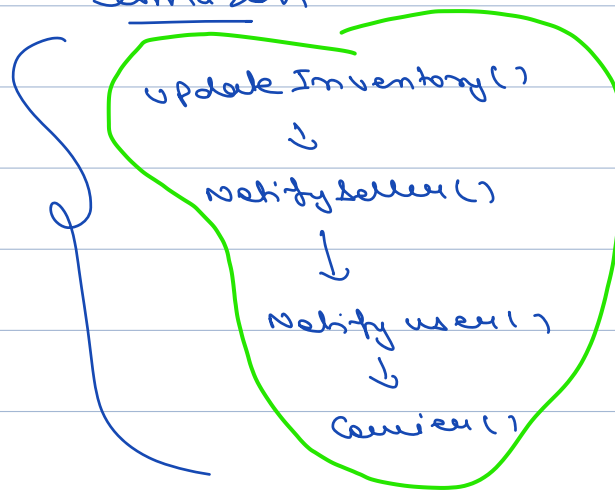 updateInventory()
Notifyseller()
Notify user()